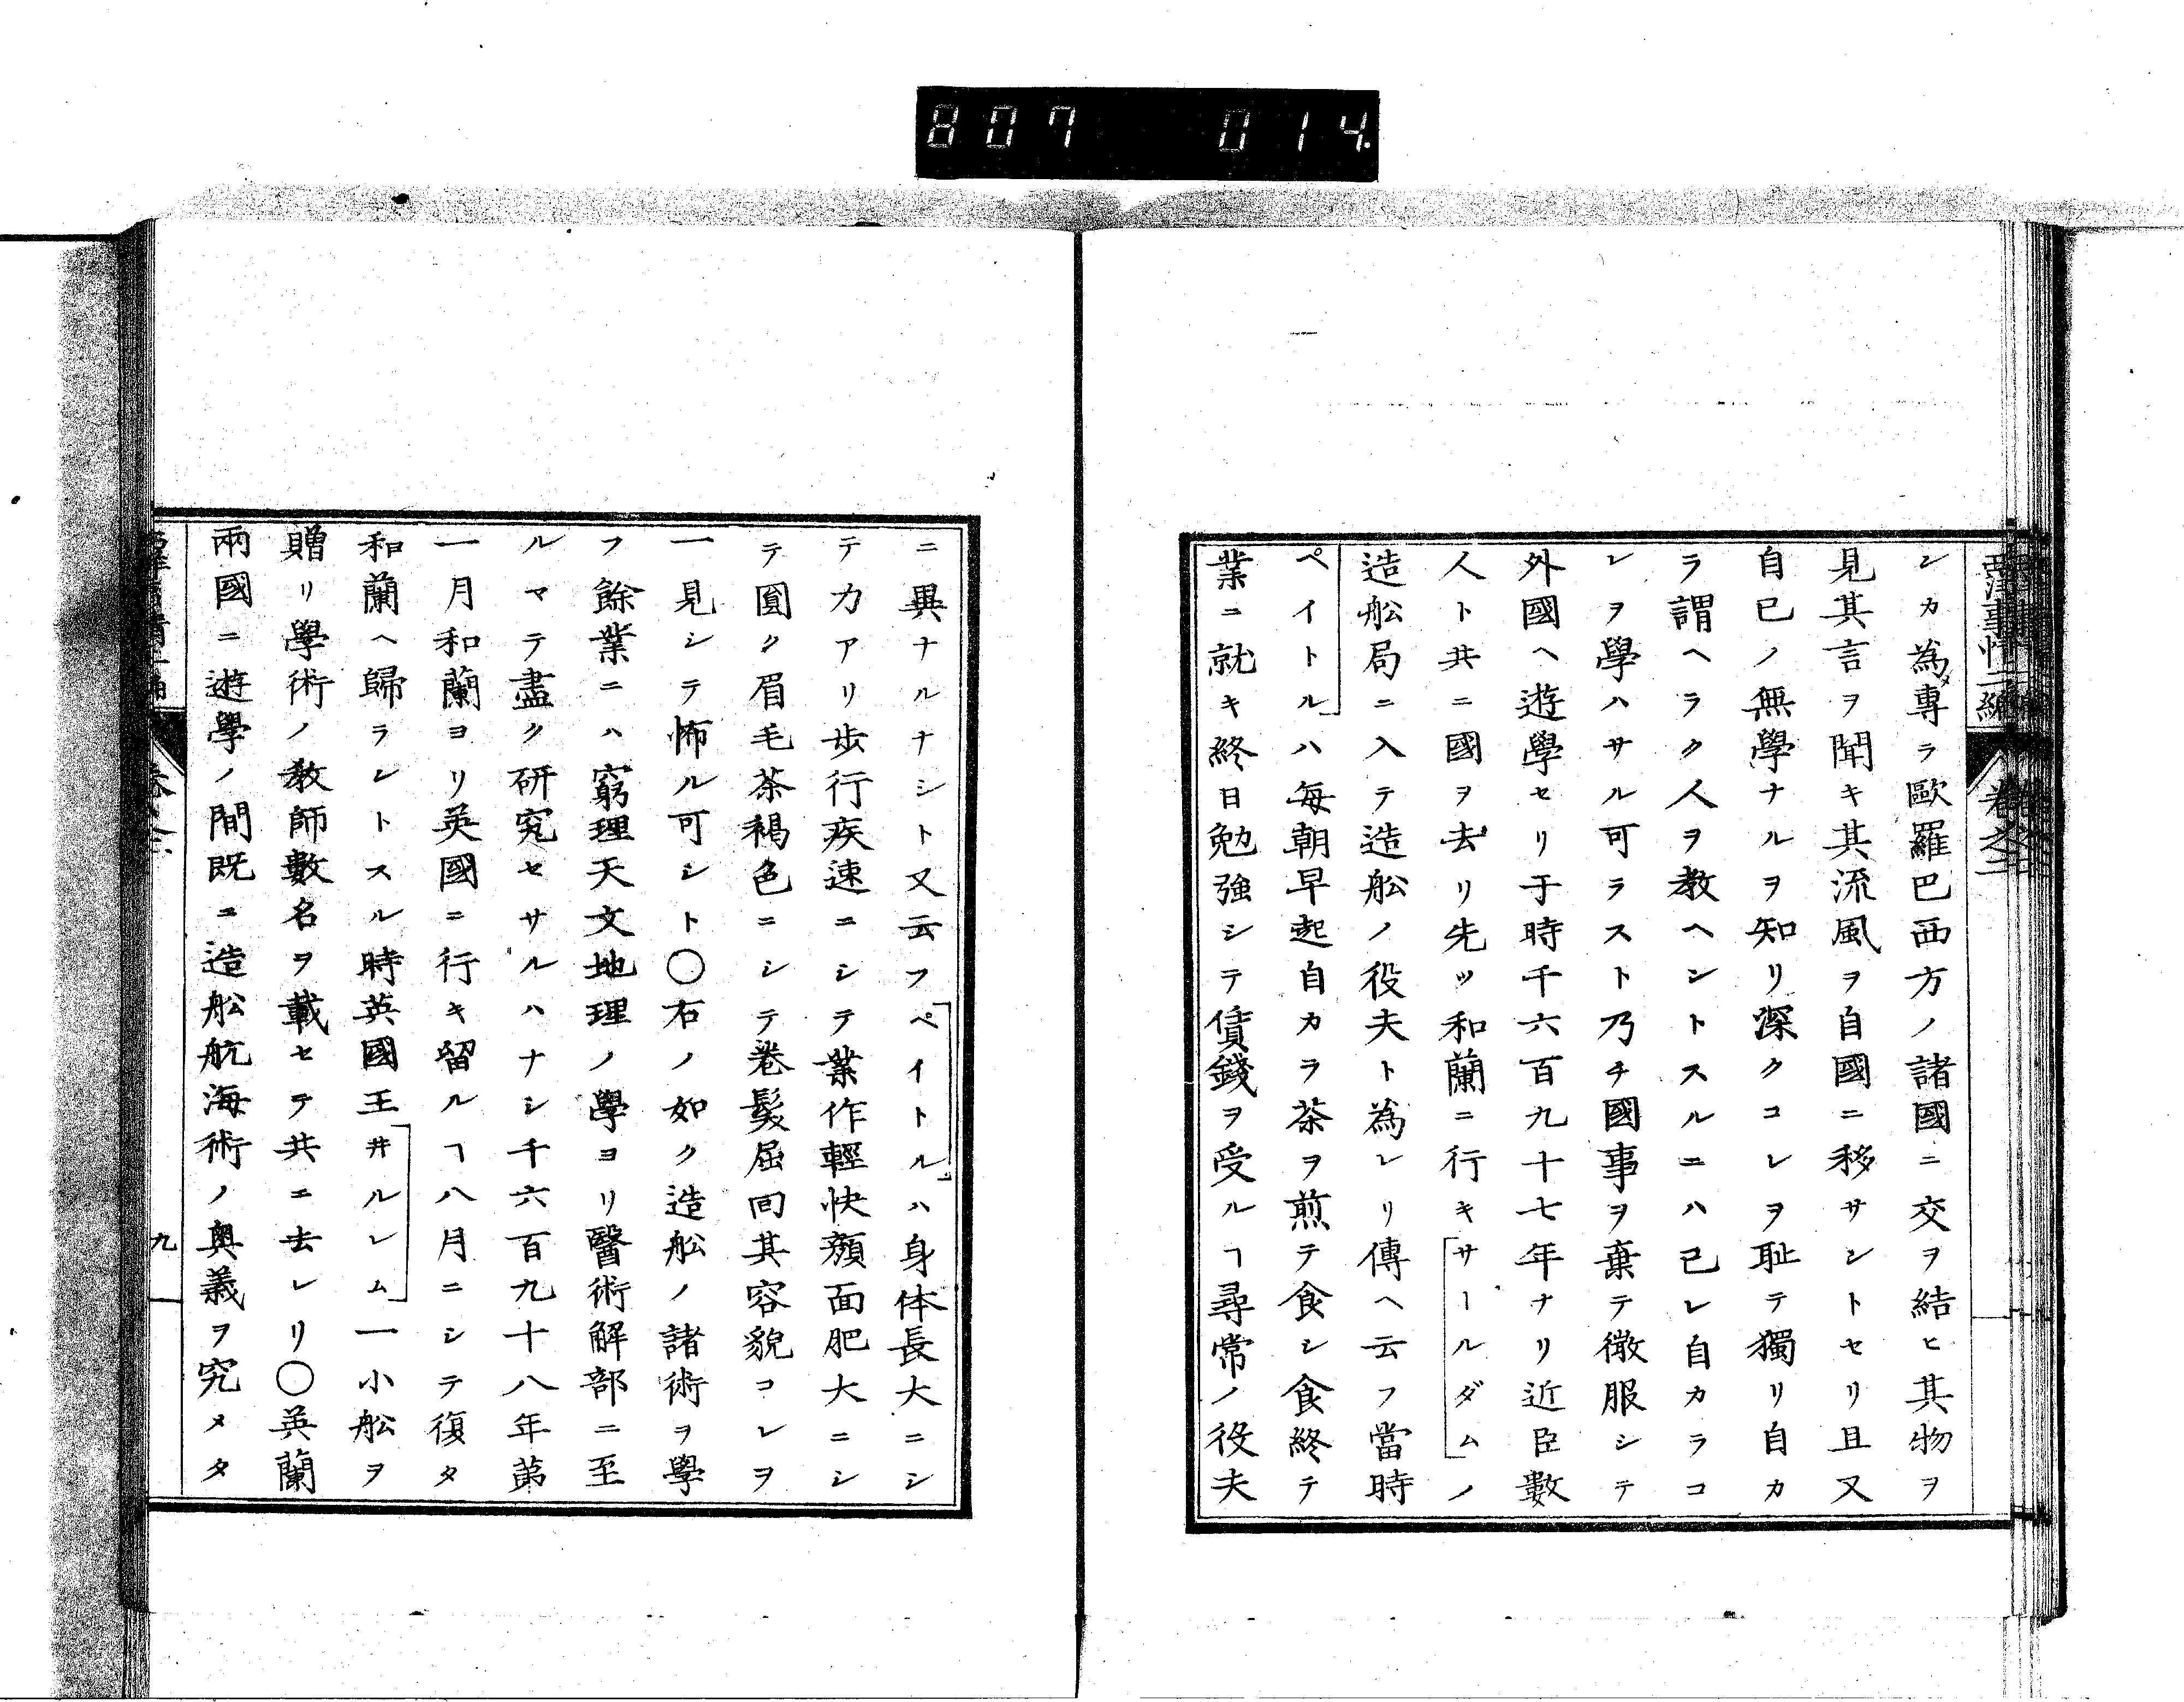 807 014.
西洋事情二編 卷之二
シカ為メ專ラ歐羅巴西方ノ諸國ニ交ヲ結ヒ其物ヲ
見其言ヲ聞キ其流風ヲ自國ニ移サントセリ且又
自已ノ無學ナルヲ知リ深クコレヲ耻テ獨リ自カ
ラ謂ヘラク人ヲ教ヘントスルニハ已レ自カラコ
レヲ學ハサル可ラスト乃チ國事ヲ棄テ微服シテ
外國ヘ遊學セリ于時千六百九十七年ナリ近臣數
人ト共ニ國ヲ去リ先ッ和蘭ニ行キサールダムノ
造舩局ニ入テ造舩ノ役夫ト為レリ傳ヘ云フ當時
ペイトルハ毎朝早起自カラ茶ヲ煎テ食シ食終テ
業ニ就キ終日勉強シテ賃錢ヲ受ルヿ尋常ノ役夫
ニ異ナルナシト又云フペイトルハ身体長大ニシ
テカアリ歩行疾速ニシテ業作輕快顏面肥大ニシ
テ圓ク眉毛茶褐色ニシテ卷髮屈回其容貌コレヲ
一見シテ怖ル可シト〇右ノ如ク造舩ノ諸術ヲ學
フ餘業ニハ窮理天文地理ノ學ヨリ醫術解部ニ至
ルマテ盡ク研究セサルハナシ千六百九十八年第
一月和蘭ヨリ英國ニ行キ留ルヿ八月ニシテ復タ
和蘭ヘ歸ラレトスル時英國王井ルレム一小舩ヲ
贈リ學術ノ教師數名ヲ載セテ共ニ去レリ〇英蘭
兩國ニ遊學ノ間既ニ造舩航海術ノ奧義ヲ究メタ
九